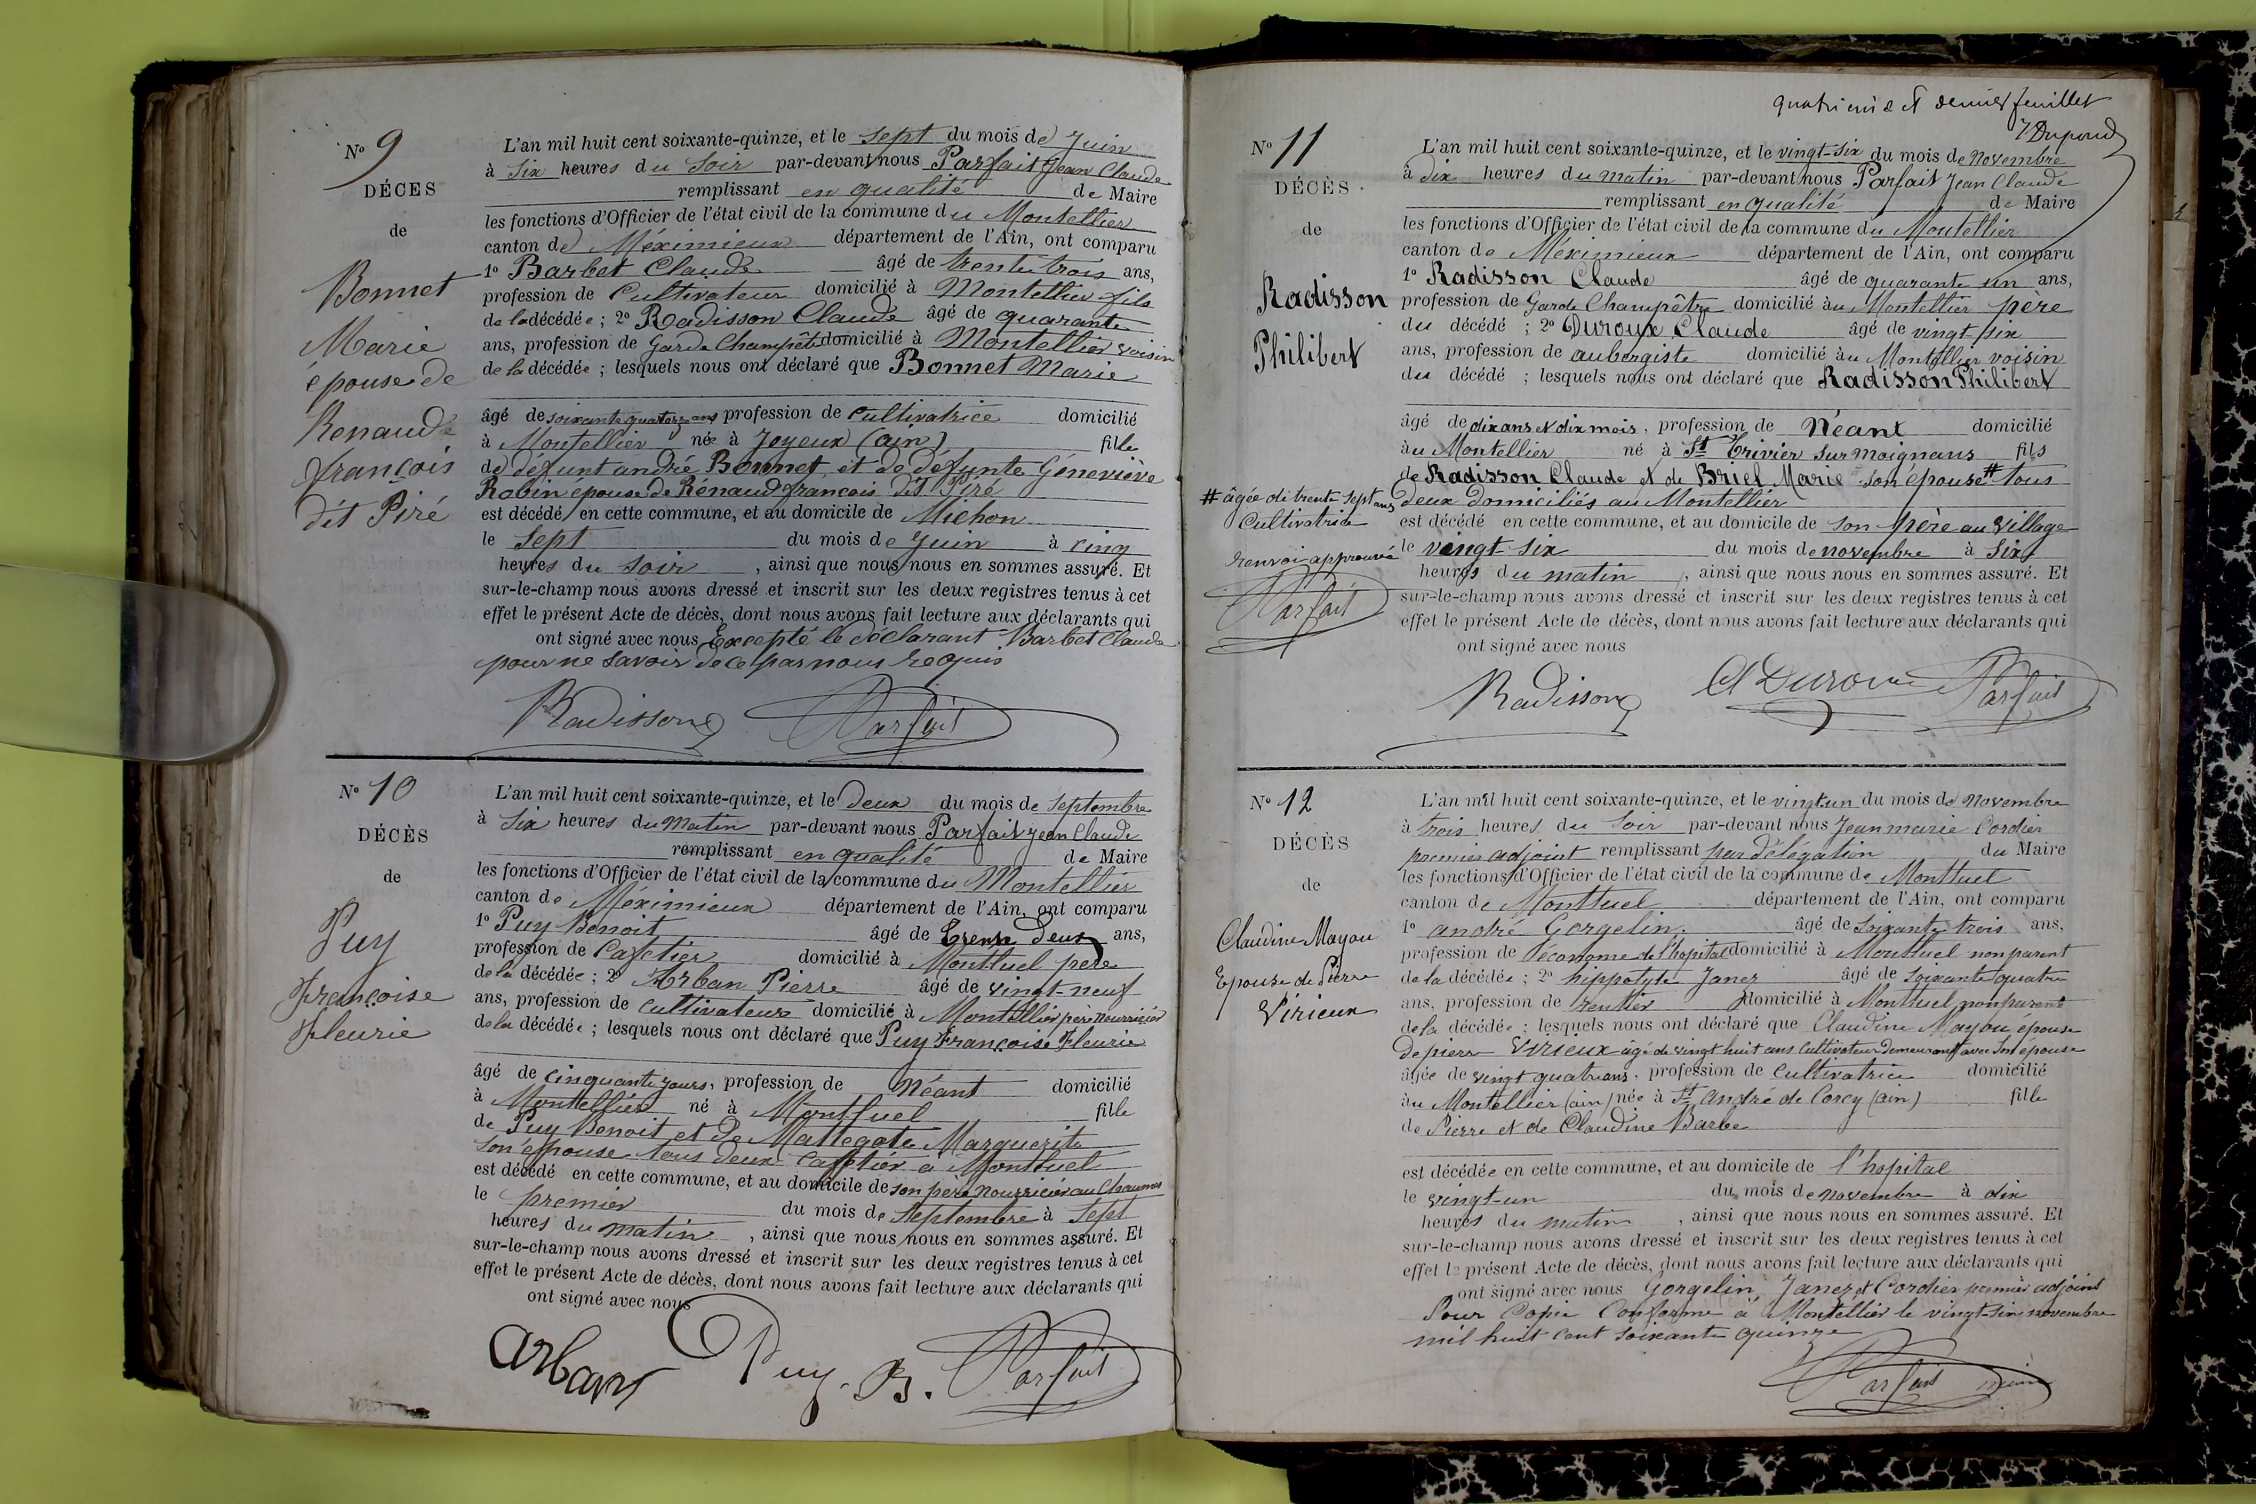 Nº 9
DÉCES
de
Bonnet
Marie
épouse de
Renaud
françois
dit Piré
L'an mil huit cent soixante-quinze, et le sept du mois de Juin
à six heures du soir par-devant nous Parfait Jean Claude
remplissant en qualité de Maire
les fonctions d'Officier de l'état civil de la commune du Montellier
canton de Méximieux département de l'Ain, ont comparu
1º Barbet Claude âgé de trente trois ans,
profession de Cultivateur domicilié à Montellier fils
de la décédée ; 2º Radisson Claude âgé de quarante
ans, profession de Garde Champêtre domicilié à Montellier voisin
de la décédée ; lesquels nous ont déclaré que Bonnet Marie
âgé de soixante quatorze ans profession de Cultivatrice domicilié
à Montellier née à Joyeux (ain) fille
de défunt andré Bonnet et de défunte Géneviève
Robin épouse de Rénaud françois dit Piré
est décédé en cette commune, et au domicile de Michon
le sept du mois de Juin à cinq
heures du soir , ainsi que nous nous en sommes assuré. Et
sur-le-champ nous avons dressé et inscrit sur les deux registres tenus à cet
effet le présent Acte de décès, dont nous avons fait lecture aux déclarants qui
ont signé avec nous Excepté le déclarant Barbet Claude
pour ne savoir de ce par nous requis
Radisson Parfait
Nº 10
DÉCÈS
de
Puy
françoise
fleurie
L'an mil huit cent soixante-quinze, et le deux du mois de septembre
à six heures du matin par-devant nous Parfait jean Claude
remplissant en qualité de Maire
les fonctions d'Officier de l'état civil de la commune du Montellier
canton de Méximieux département de l'Ain, ont comparu
1º Puy Benoit âgé de trente deux ans,
profession de Cafetier domicilié à Montluel père
de la décédée ; 2º Arban Pierre âgé de vingt neuf
ans, profession de cultivateur domicilié à Montellier père nourricier
de la décédée ; lesquels nous ont déclaré que Puy Françoise Fleurie
âgé de cinquante jours, profession de Néant domicilié
à Montellier né à Montluel fille
de Puy Benoit et de Mattegate Marguerite
son épouse tous deux Cafetier à Montluel
est décédé en cette commune, et au domicile de son père nourricier au Chaumes
le premier du mois de Septembre à Sept
heures du matin , ainsi que nous nous en sommes assuré. Et
sur-le-champ nous avons dressé et inscrit sur les deux registres tenus à cet
effet le présent Acte de décès, dont nous avons fait lecture aux déclarants qui
ont signé avec nous
arban Puy. B. Parfait
quatrième et dernier feuillet
Nº 11
DÉCÈS.
de
Radisson
Philibert
# âgée de trente sept ans
Cultivatrice
renvoi approuvé
Parfait
L'an mil huit cent soixante-quinze, et le vingt-six du mois de novembre
à dix heures du matin par-devant nous Parfait Jean Claude
remplissant en qualité de Maire
les fonctions d'Officier de l'état civil de la commune du Montellier
canton de Méximieux département de l'Ain, ont comparu
1º Radisson Claude âgé de quarante un ans,
profession de Garde Champêtre domicilié au Montellier père
du décédé ; 2º Duroux Claude âgé de vingt six
ans, profession de aubergiste domicilié au Montellier voisin
du décédé ; lesquels nous ont déclaré que Radisson Philibert
âgé de dix ans et dix mois, profession de Néant domicilié
au Montellier né à St Trivier sur moignans fils
de Radisson Claude et de Briel Marie son épouse # tous
deux domiciliés au Montellier
est décédé en cette commune, et au domicile de son père au village
le vingt-six du mois de novembre à six
heures du matin , ainsi que nous nous en sommes assuré. Et
sur-le-champ nous avons dressé et inscrit sur les deux registres tenus à cet
effet le présent Acte de décès, dont nous avons fait lecture aux déclarants qui
ont signé avec nous
Radisson Cl Duroux Parfait
Nº 12
DÉCÈS
de
Claudine Mayou
Epouse de Pierre
Virieux
L'an mil huit cent soixante-quinze, et le vingt-un du mois de novembre
à trois heures du soir par-devant nous Jean marie Cordier
premier adjoint remplissant par délégation du Maire
les fonctions d'Officier de l'état civil de la commune de Montluel
canton de Montluel département de l'Ain, ont comparu
1º andré Gorgelin, âgé de soixante trois ans,
profession de économe de l'hopital domicilié à Montluel non parent
de la décédée ; 2º hippolyte Janez âgé de soixante quatre
ans, profession de rentier domicilié à Montluel non parent
de la décédée ; lesquels nous ont déclaré que Claudine Mayou épouse
de pierre Virieux âgé de vingt huit ans cultivateur demeurant avec son épouse
âgée de vingt quatre ans, profession de Cultivatrice domicilié
au Montellier (ain) née à St André de Corcy (ain) fille
de Pierre et de Claudine Barbe
est décédée en cette commune, et au domicile de l'hopital
le vingt-un du mois de novembre à dix
heures du matin , ainsi que nous nous en sommes assuré. Et
sur-le-champ nous avons dressé et inscrit sur les deux registres tenus à cet
effet le présent Acte de décès, dont nous avons fait lecture aux déclarants qui
ont signé avec nous Gorgelin, Janez et Cordier premier adjoint
Pour Copie Conforme à Montellier le vingt-six novembre
mil huit cent soixante quinze
Parfait maire